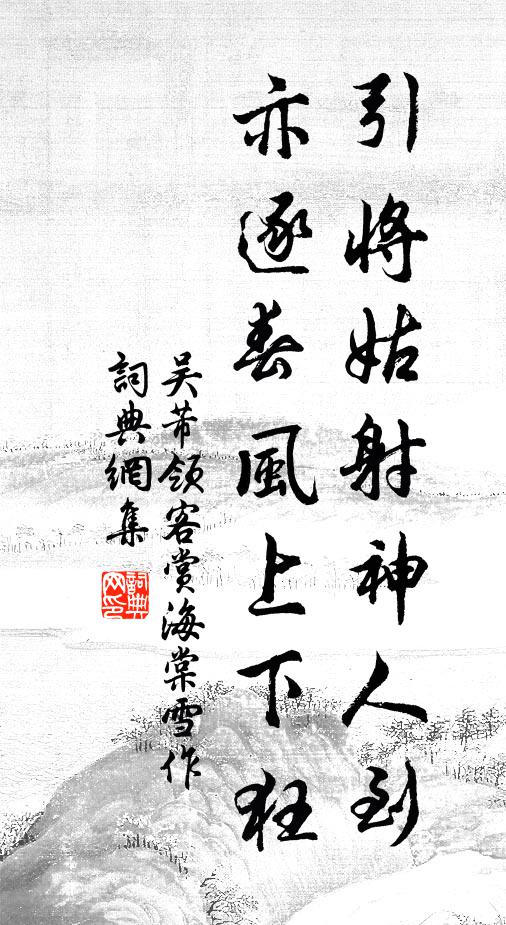 引將姑射神人到
亦逐春風上下狂
吳芾領客賞海棠雪作
詞典網集
詞典
网印